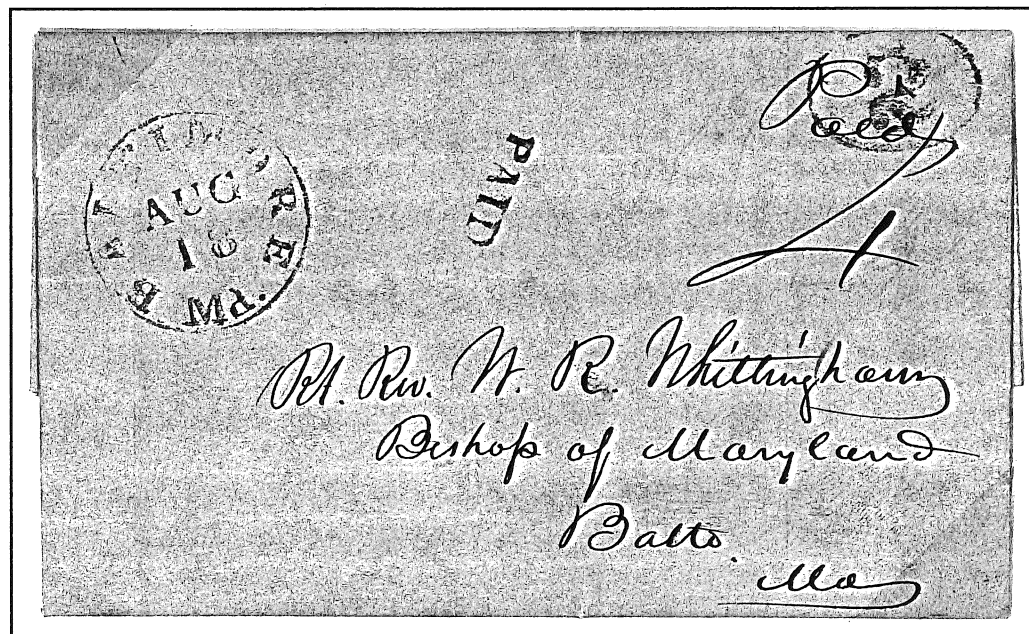 BALTIMORE Md.
AUG
PAID
Paid
4
Rt. Rev. W. R. Whittingham
Bishop of Maryland
Balto.
Md